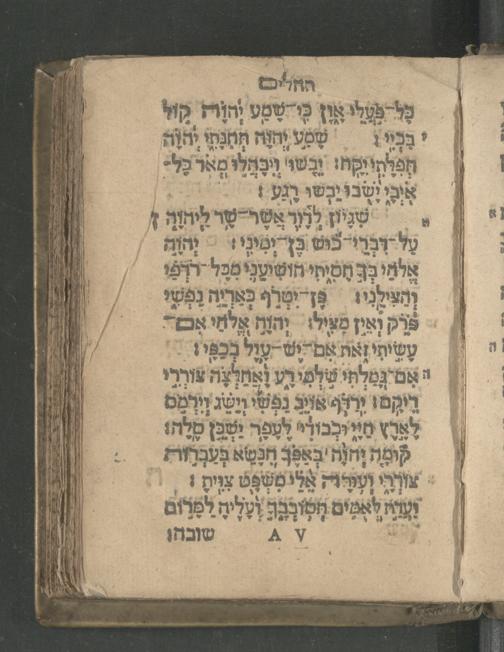 תהלים
כָּל־פֹּעֲלֵי אָוֶן כִּי־שָׁמַע יְהוָה קוֹל
בִּכְיִי׃ שָׁמַע יְהוָה תְּחִנָּתִי יְהוָה י
תְּפִלָּתִי יִקָּח׃ יֵבֹשׁוּ וְיִבָּהֲלוּ מְאֹד כָּל־
אֹיְבָי יָשֻׁבוּ יֵבֹשׁוּ רָגַע׃
שִׁגָּיוֹן לְדָוִד אֲשֶׁר־שָׁר לַיהוָה ז
עַל־דִּבְרֵי־כוּשׁ בֶּן־יְמִינִי׃ יְהוָה
אֱלֹהַי בְּךָ חָסִיתִי הוֹשִׁיעֵנִי מִכָּל־רֹדְפַי
וְהַצִּילֵנִי׃ פֶּן־יִטְרֹף כְּאַרְיֵה נַפְשִׁי
פֹּרֵק וְאֵין מַצִּיל׃ יְהוָה אֱלֹהַי אִם־
עָשִׂיתִי זֹאת אִם־יֶשׁ־עָוֶל בְּכַפָּי׃
אִם־גָּמַלְתִּי שֹׁלְמִי רָע וָאֲחַלְּצָה צוֹרְרִי ה
רֵיקָם׃ יִרַדֹּף אוֹיֵב נַפְשִׁי וְיַשֵּׂג וְיִרְמֹס
לָאָרֶץ חַיָּי וּכְבוֹדִי לֶעָפָר יַשְׁכֵּן סֶלָה׃
קוּמָה יְהוָה בְּאַפֶּךָ הִנָּשֵׂא בְּעַבְרוֹת
צוֹרְרָי וְעוּרָה אֵלַי מִשְׁפָּט צִוִּיתָ׃
וַעֲדַת לְאֻמִּים תְּסוֹבְבֶךָּ וְעָלֶיהָ לַמָּרוֹם
שובה׃ A V